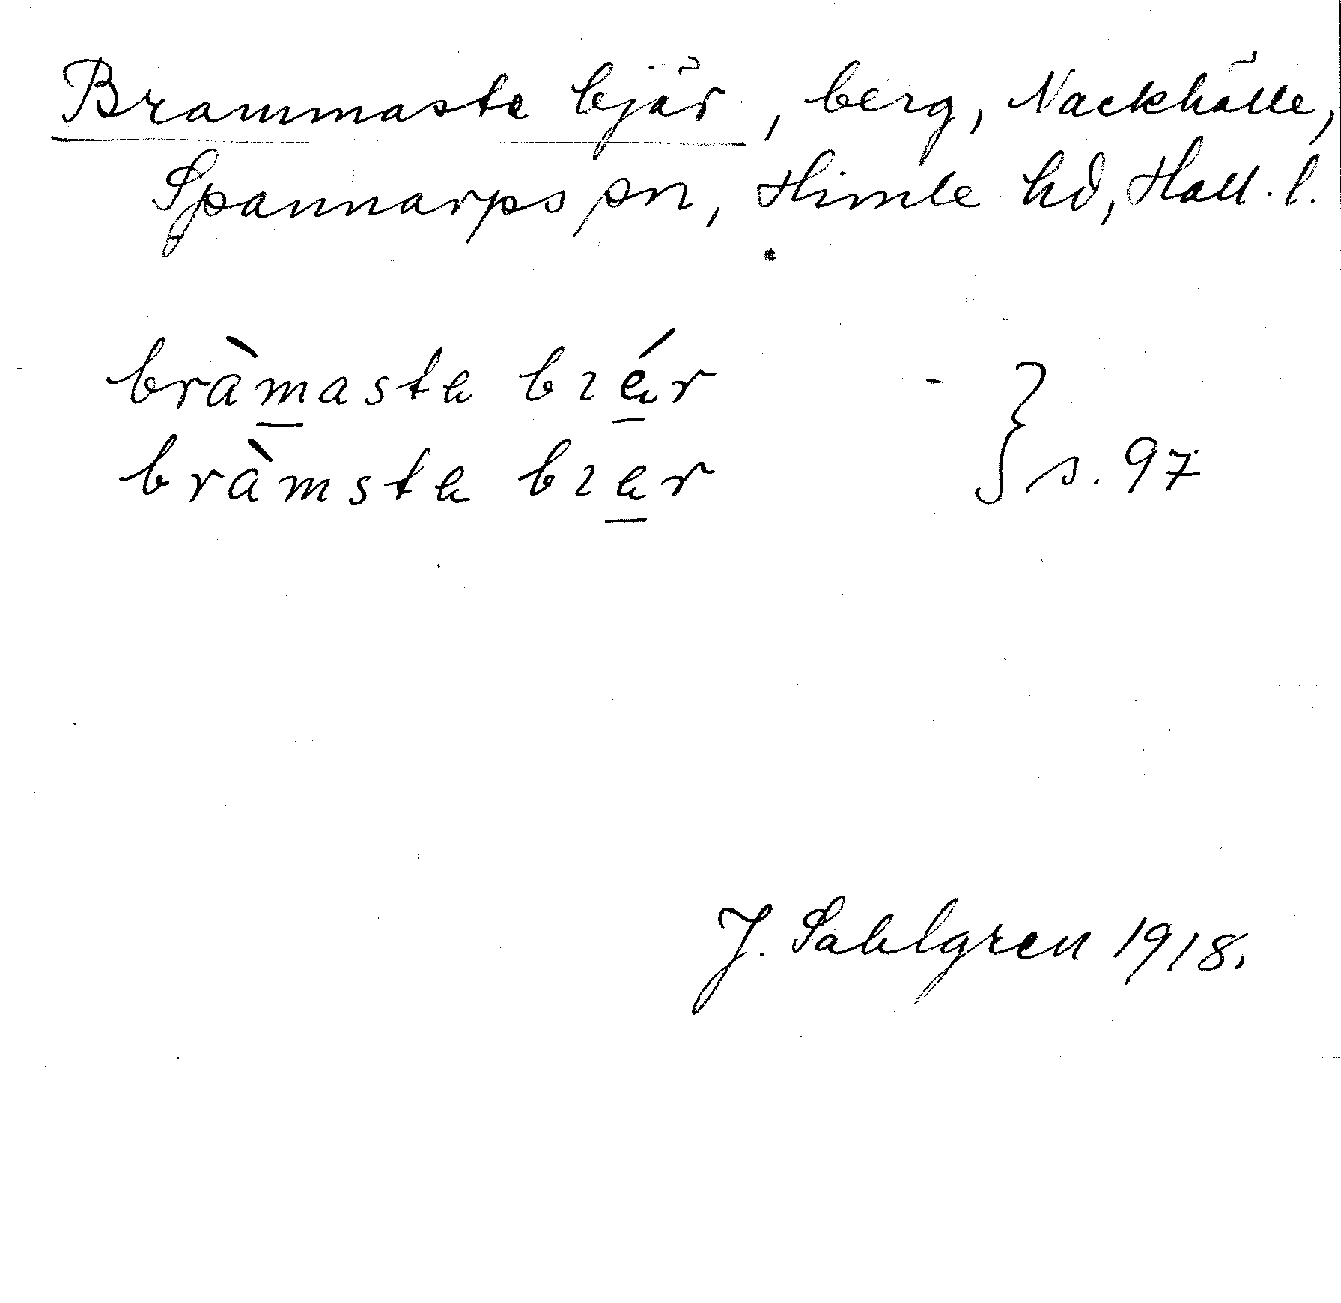 Brammaste bjär, berg, Nackhälle,
Spannarps sn, Himle hd, Hall. l.
bràmasta bɿér } s. 97
bràmsta bɿer
J. Sahlgren 1918.